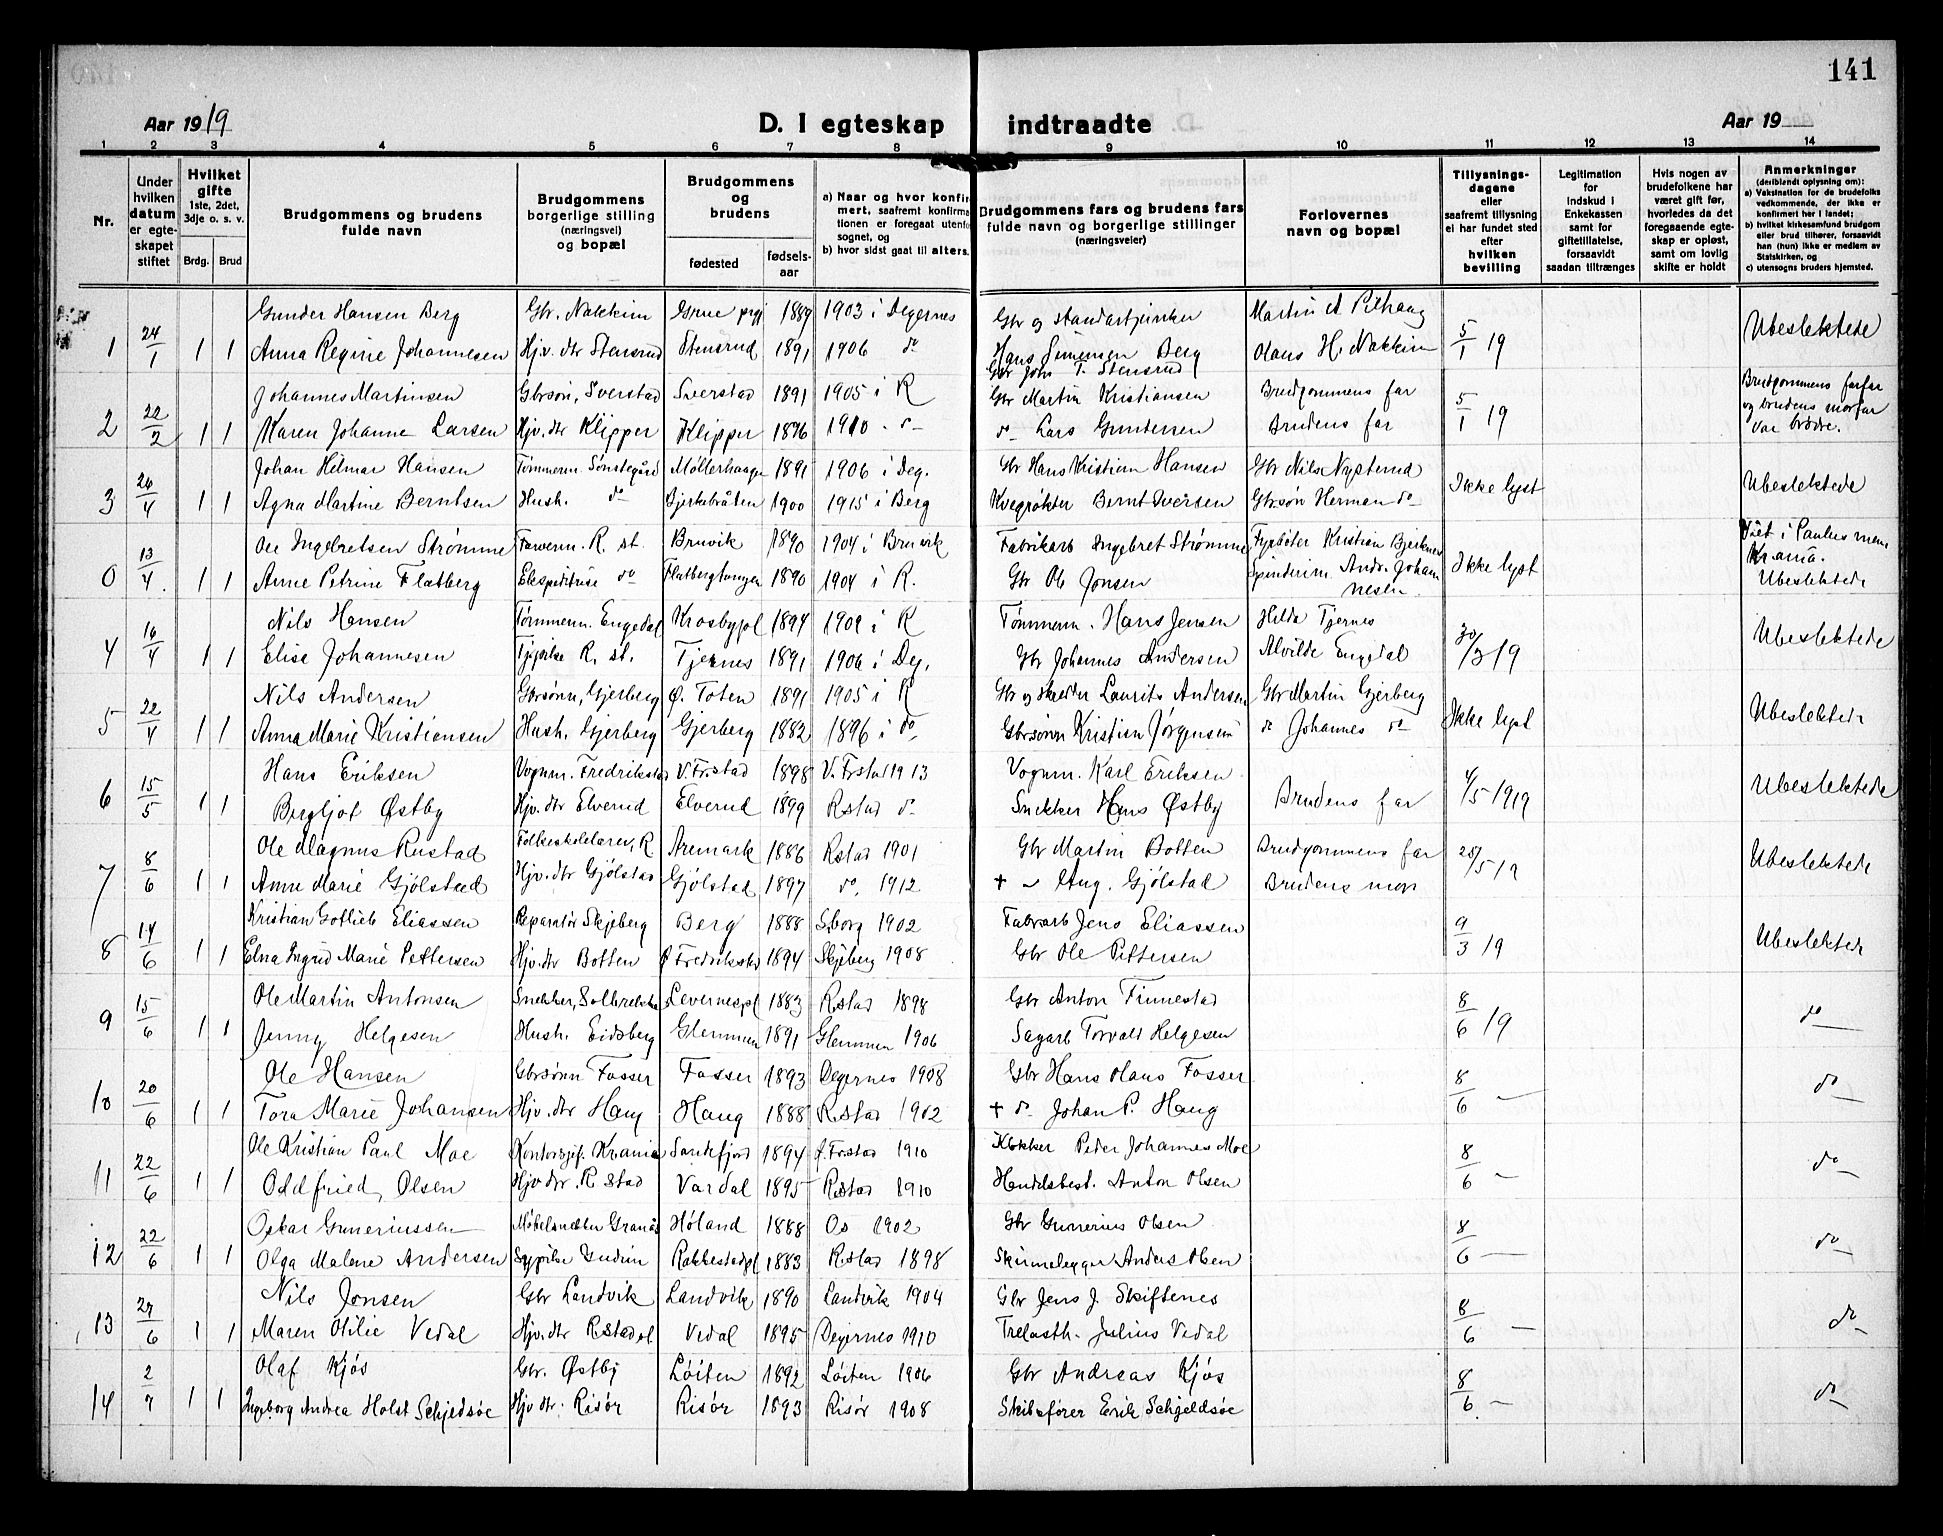 141
Aar 1919
D. I egteskap indtraadte
Aar 19
1 2 3 4 5 6 7 8 9 10 11 12 13 14
Nr.
Under hvilken datum er egteskapet stiftet
Hvilket gifte 1ste, 2det, 3dje o. s. v.
Brdg. Brud
Brudgommens og brudens fulde navn
Brudgommens borgerlige stilling (næringsvei) og bopæl
Brudgommens og brudens
fødested
fødselsaar
a) Naar og hvor konfirmert, saafremt konfirmationen er foregaat utenfor sognet, og
b) hvor sidst gaat til alters.
Brudgommens fars og brudens fars fulde navn og borgerlige stillinger (næringsveier)
Forlovernes navn og bopæl
Tillysningsdagene eller saafremt tillysning ei har fundet sted efter hvilken bevilling
Legitimation for indskud i Enkekassen samt for giftetillatelse, forsaavidt saadan tiltrænges
Hvis nogen av brudefolkene har været gift før, hvorledes da det foregaaende egteskap er opløst, samt om lovlig skifte er holdt
Anmerkninger (deriblandt oplysning om):
a) Vaksination for de brudefolks vedkommende, der ikke er konfirmert her i landet;
b) hvilket kirkesamfund brudgom eller brud tilhører, forsaavidt han (hun) ikke er medlem av Statskirken, og
c) utensogns bruders hjemsted.
Gunder Hansen Berg Gbr. Nakkim Grue prgj 1889 1903 i Degernes Gbr og standartjunker Martin A Pithaug
1 24/1 1 1 Anna Regine Johannesen Hjv. dtr Stensrud Stensrud 1891 1906 do Hans Simensen Berg Olaus H. Nakkim 5/1 19 Ubeslektede
Gbr Johs T. Stensrud
Johannes Martinsen Gbrsøn, Sverstad Sverstad 1891 1905 i R Gbr Martin Kristiansen Brudgommens far Brudgommens farfar
2 22/2 1 1 Karen Johanne Larsen Hjv. dtr Klipper Klipper 1896 1910 do do Lars Gundersen Brudens far 5/1 19 og brudens morfar
var brødre.
Johan Hilmar Hansen Tømmerm. Sønstegård Møllerhaugen 1891 1906 i Deg. Gbr Hans Kristian Hansen Gbr Nils Nysterud
3 26/4 1 1 Agna Martine Berntsen Hush. do Bjerkebråten 1900 1915 i Berg Kvegrøkter Bernt Iversen Gbrsøn Herman do Ikke lyst Ubeslektede
Ole Ingebretsen Strømme Farverm. R. st. Bruvik 1890 1904 i Bruvik Fabrikarb Ingebret Strømme Fyrbøter Kristian Bjerknes Viet i Paulus men
0 13/4 1 1 Anne Petrine Flatberg Ekspeditrise do Flatbergtangen 1890 1904 i R. Gbr Ole Jonsen Spinderim. Andr. Johannesen Ikke lyst Krania. Ubeslektede
Nils Hansen Tømmerm. Engedal Krosbypl 1894 1909 i R Tømmerm. Hans Jensen Hilda Tjernes
4 16/4 1 1 Elise Johannesen R. st. Tjernes 1891 1906 i Deg. Gbr Johannes Andersen Alvilde Engedal 30/3 19 Ubeslektede
Nils Andersen Gbrsønn, Gjerberg Ø. Toten 1891 1905 i R Gbr og skredder Laurits Andersen Gbr Martin Gjerberg
5 22/4 1 1 Anna Marie Kristiansen Hush. Gjerberg Gjerberg 1882 1896 i do Gbrsønn Kristian Jørgensen do Johannes do Ikke lyst Ubeslektede
Hans Eriksen Vognm. Fredrikstad V. Fr.stad 1898 V. Frstad 1913 Vognm. Karl Eriksen
6 15/5 1 1 Bergljot Østby Hjv. dtr Elverud Elverud 1899 R.stad do Snekker Hans Østby Brudens far 4/5 1919 Ubeslektede
Ole Magnus Rustad Folkeskolelærer, R. Aremark 1886 R.stad 1901 Gbr Martin Botten Brudgommens far
7 8/6 1 1 Anne Marie Gjølstad Hjv. dtr Gjølstad Gjølstad 1897 do. 1912 + Aug. Gjølstad Brudens mor 25/5 19 Ubeslektede
Kristian Gotlieb Eliassen Reparatør Skjeberg Berg 1888 S.borg 1902 Fabrarb Jens Eliassen
8 14/6 1 1 Elna Ingrid Marie Pettersen Hjv. dtr Botten Ø Fredrikstad 1894 Skjeberg 1908 Gbr Ole Pettersen 9/3 19 Ubeslektede
Ole Martin Antonsen Snekker, Solbrekke Levernespl 1883 R.stad 1898 Gbr Anton Finnestad
9 15/6 1 1 Jenny Helgesen Hush. Eidsberg Glemmen 1891 Glemmen 1906 Sagarb Torvald Helgesen 8/6 19 do
Ole Hansen Gbrsønn Fosser Fosser 1893 Degernes 1908 Gbr Hans Olaus Fosser
10 20/6 1 1 Tora Marie Johansen Hjv. dtr Haug Haug 1888 R.stad 1902 + do Johan P. Haug 8/6 — do
Ole Kristian Paul Moe Kontorsjef. Krania Sandefjord 1894 Ø. Frstad 1910 Klokker Peder Johannes Moe
11 22/6 1 1 Oddfried Olsen Hjv dtr. R stad Vardal 1895 R.stad 1910 Handelsbest. Anton Olsen 8/6 — do
Oskar Guneriussen Høland 1888 Os 1902 Gbr Gunerius Olsen
12 22/6 1 1 Olga Malene Andersen Rakkestadpl 1883 R.stad 1898 Skinnelegger Anders Olsen 8/6 — do
Nils Jonsen Gbr Landvik Landvik 1890 Landvik 1904 Gbr Jens J. Skiftenes
13 27/6 1 1 Maren Otilie Vedal Hjv. dtr R.stad Vedal 1895 Degernes 1910 Trelasth. Julius Vedal 8/6 — do
Olaf Kjøs Gbr. Østby Løiten 1892 Løiten 1906 Gbr Andreas Kjøs
14 2/7 1 1 Ingeborg Andrea Holst Schjeldsøe Hjv dtr. Risør Risør 1893 Risør 1908 Skibsfører Erik Schjeldsøe 8/6 — do